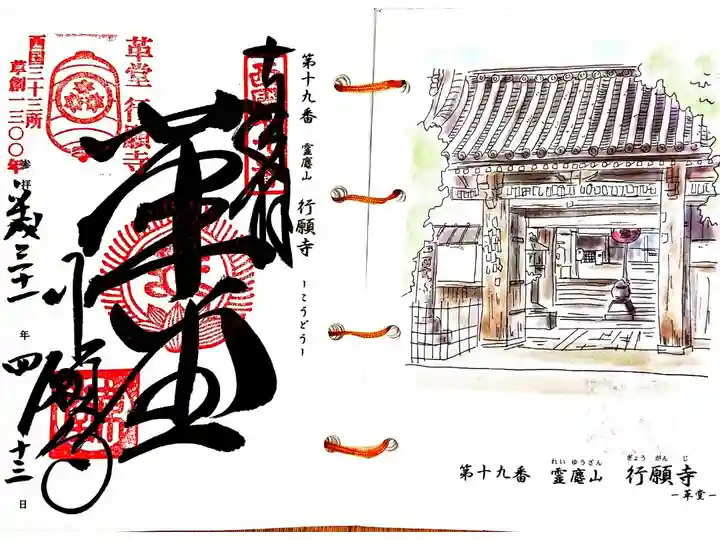 奉拝
革堂
行願寺
西国三十三所
草創一三〇〇年
革堂 行願寺
参拝
三十一年四月十三日
第十九番 霊麀山 行願寺 ーこうどうー
れいゆうざん
ぎょうがんじ
第十九番 霊麀山 行願寺
ー革堂ー